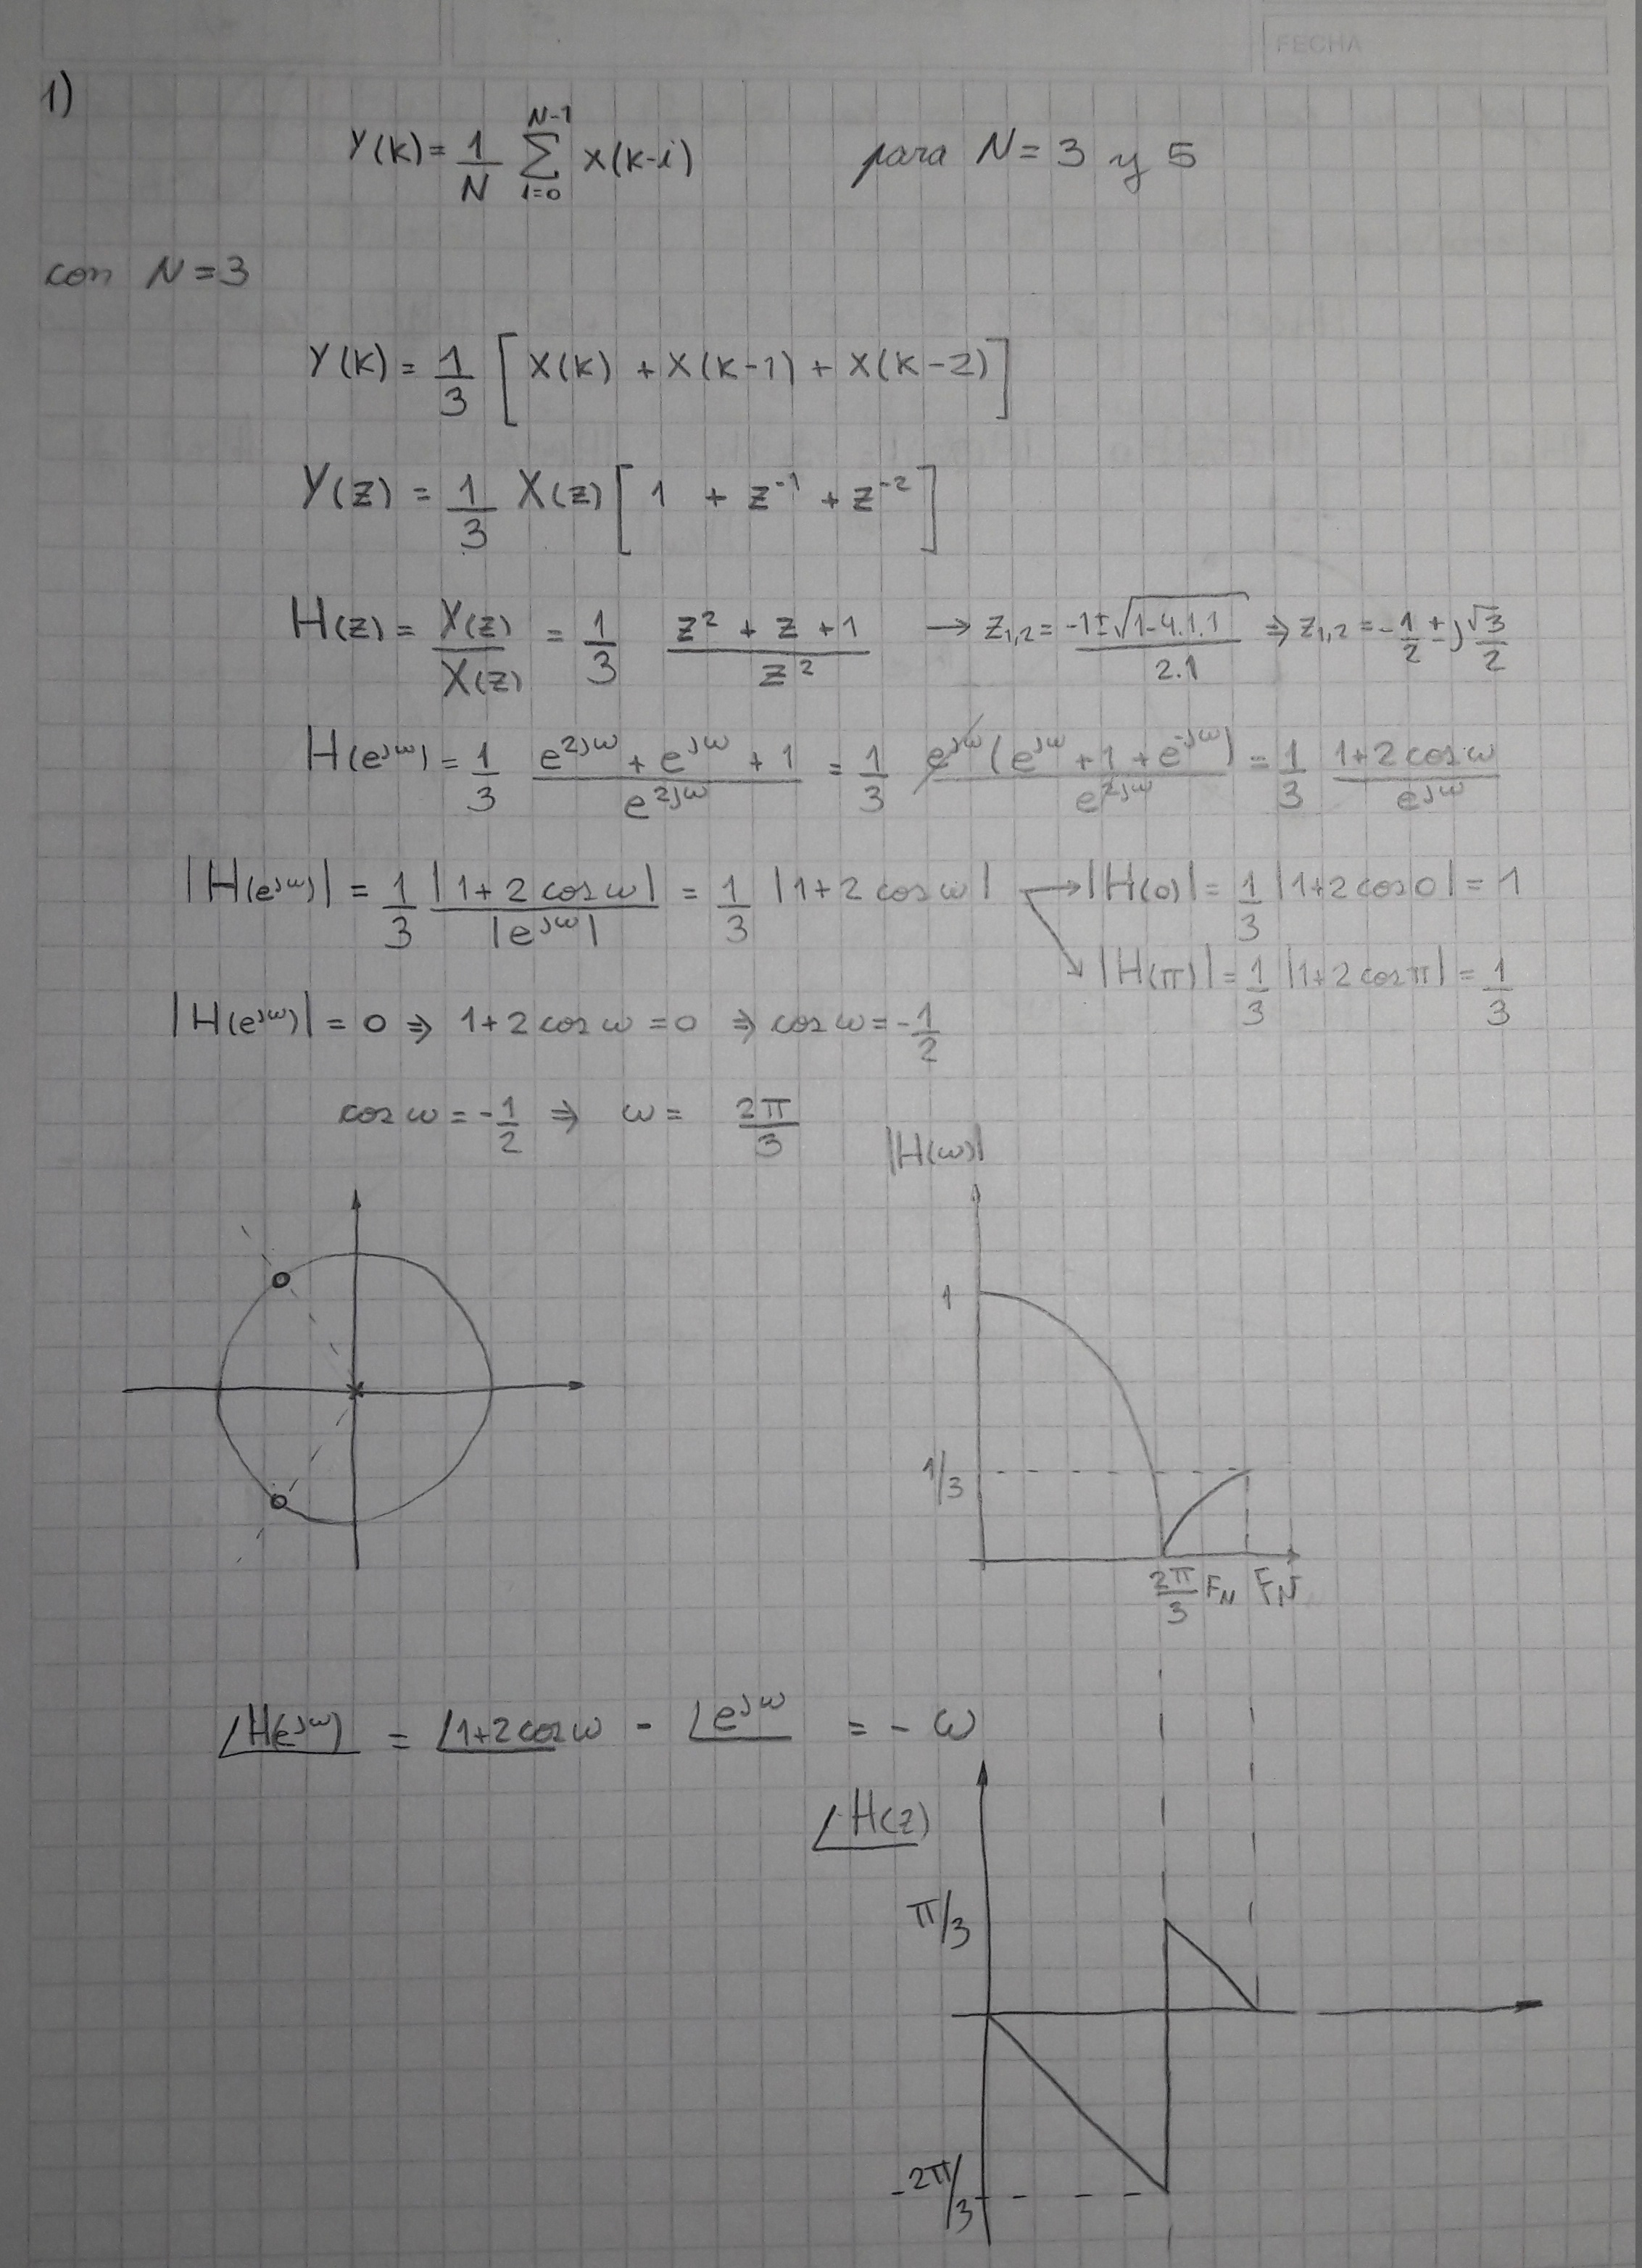 FECHA
1)
Y(k) = 1/N ∑_{i=0}^{N-1} x(k-i) para N = 3 y 5
con N = 3
Y(k) = 1/3 [X(k) + X(k-1) + X(k-2)]
Y(z) = 1/3 X(z) [1 + z⁻¹ + z⁻²]
H(z) = Y(z)/X(z) = 1/3 (z² + z + 1)/z² → z₁,₂ = (-1 ± √(1-4.1.1))/2.1 ⇒ z₁,₂ = -1/2 ± j √3/2
H(e^{jω}) = 1/3 (e^{2jω} + e^{jω} + 1)/e^{2jω} = 1/3 e^{jω}(e^{jω} + 1 + e^{-jω})/e^{2jω} = 1/3 (1+2 cos ω)/e^{jω}
|H(e^{jω})| = 1/3 |1+2 cos ω|/|e^{jω}| = 1/3 |1+2 cos ω| → |H(0)| = 1/3 |1+2 cos 0| = 1
↘ |H(π)| = 1/3 |1+2 cos π| = 1/3
|H(e^{jω})| = 0 ⇒ 1+2 cos ω = 0 ⇒ cos ω = -1/2
cos ω = -1/2 ⇒ ω = 2π/3
|H(ω)|
1
1/3
2π/3 F_N F_N
∠H(e^{jω}) = ∠1+2 cos ω - ∠e^{jω} = - ω
∠H(z)
π/3
-2π/3